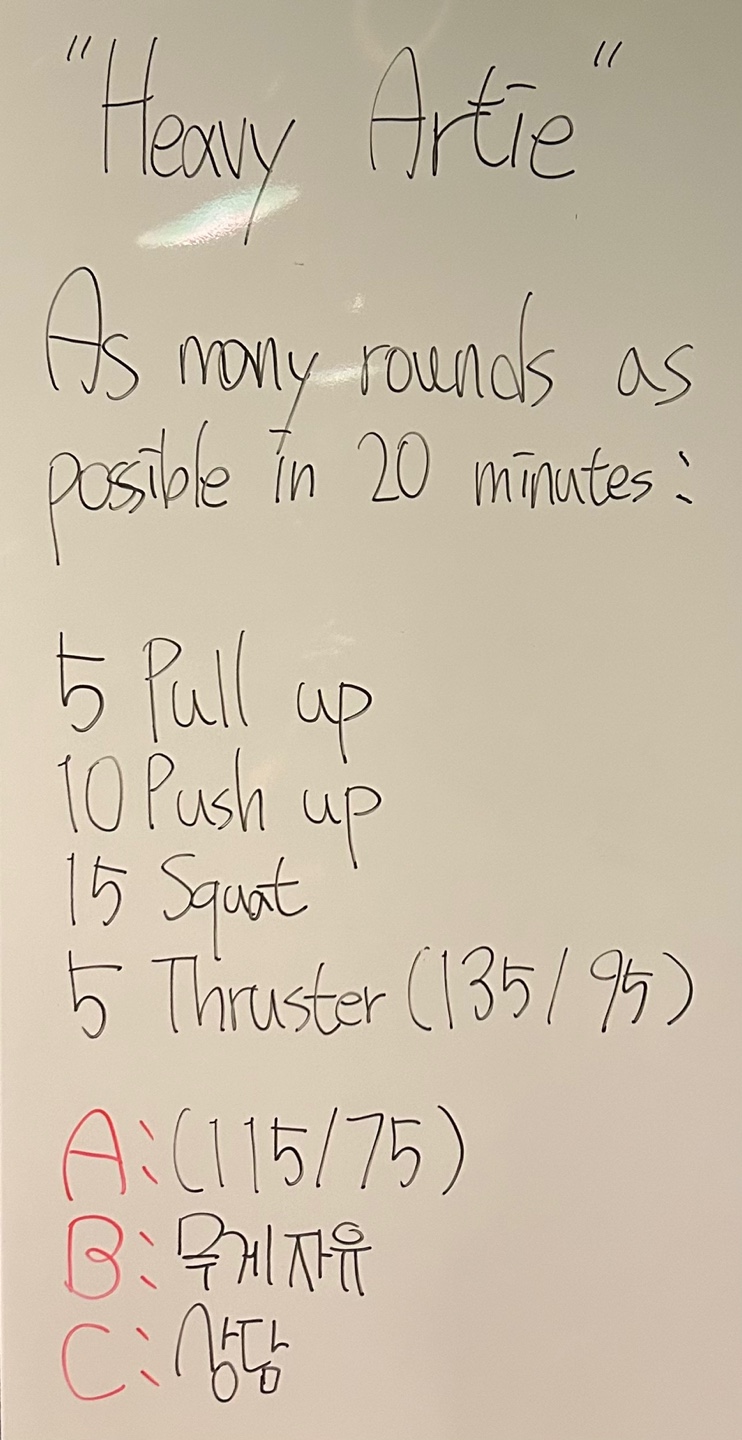 "Heavy Artie"
As many rounds as
possible in 20 minutes:
5 Pull up
10 Push up
15 Squat
5 Thruster (135/95)
A: (115/75)
B: 무게자유
C: 상담